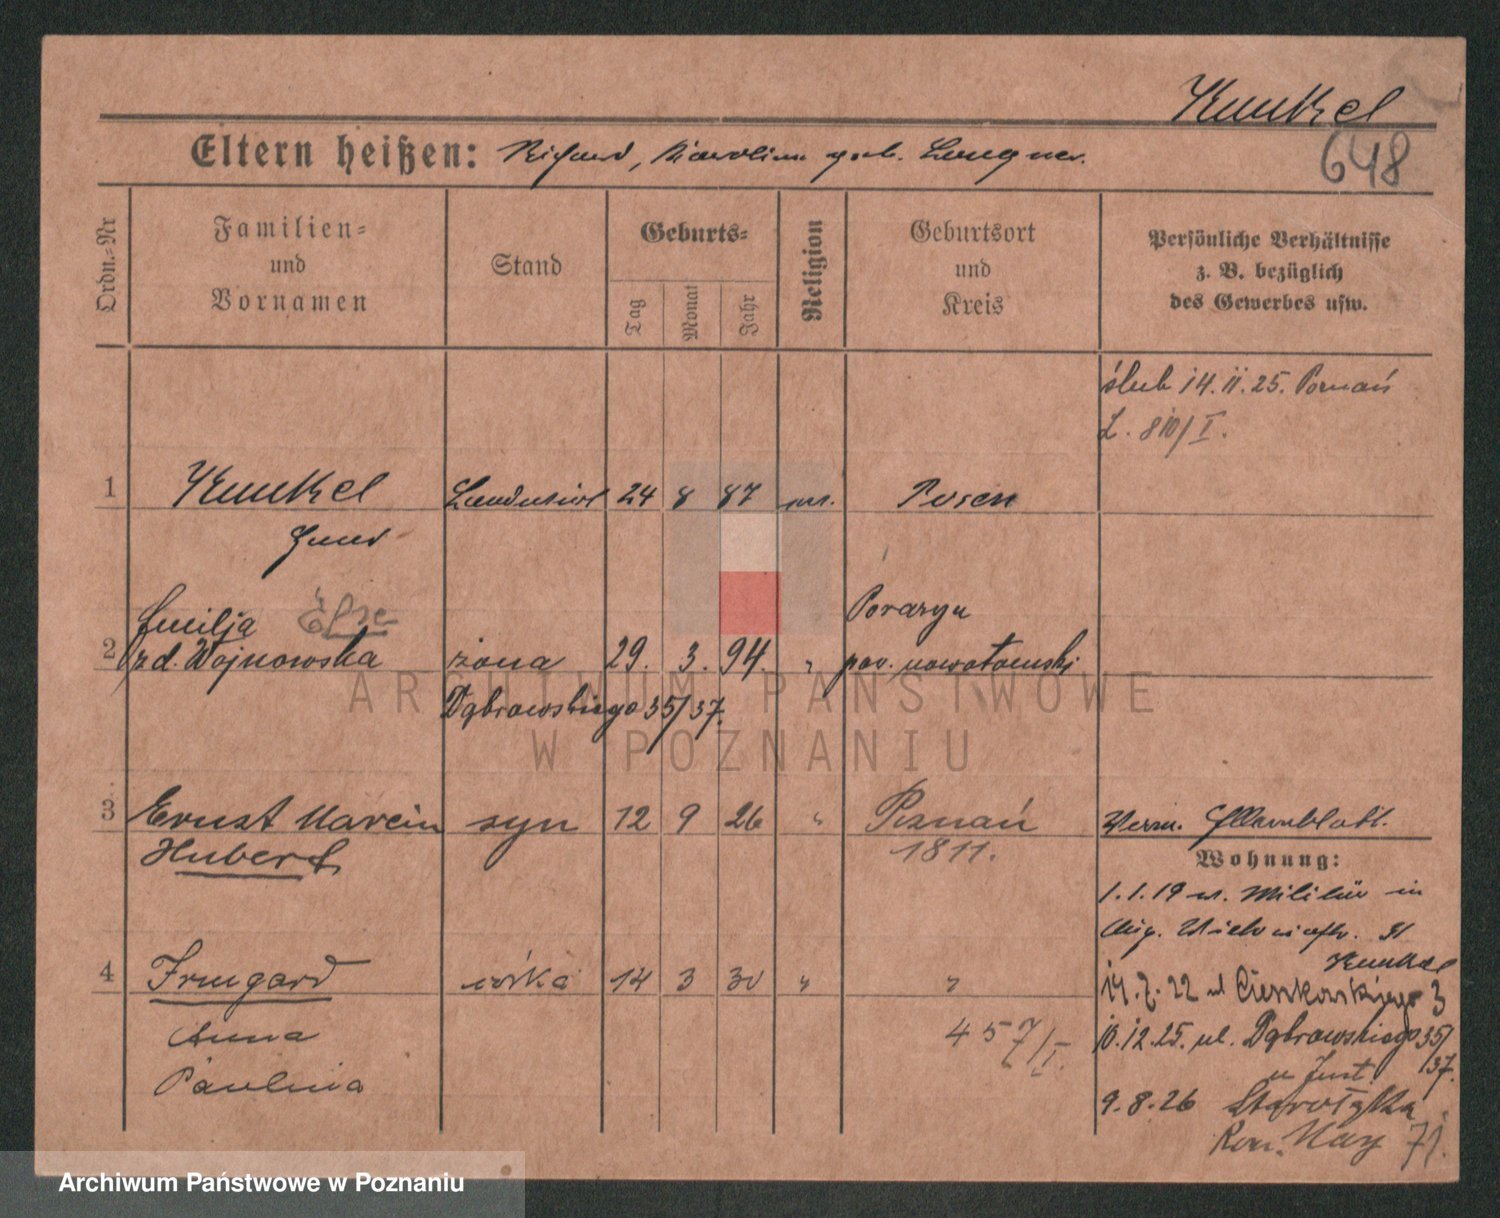 Kunkel
Eltern heißen: Richard, Karolina geb. Langner.
648
Ordn.-Nr
Familien-
und
Vornamen
Stand
Geburts-
Tag
Monat
Jahr
Religion
Geburtsort
und
Kreis
Persönliche Verhältnisse
z. B. bezüglich
des Gewerbes usw.
ślub 14.II.25. Poznań
L. 810/I.
1 Kunkel Landwirt 24 8 87 Posen
Emilja Else
2 zd. Wojnowska żona 29. 3. 94. " Porazyn
pow. nowotomski
Dąbrowskiego 35/37.
3 Ernst Marcin syn 12 9 26 " Poznań
Hubert 1811.
Verm. Elternblatt.
Wohnung:
1.1.19 v. Militär in
4 Irmgard córka 14 3 30 " "
Anna
Paulina
457/I.
Kunkel
14.7.22 ul Cieszkowskiego 3
10.12.25. ul. Dąbrowskiego 35/
37.
9.8.26 Starołęka
71.
ARCHIWUM PAŃSTWOWE
W POZNANIU
Archiwum Państwowe w Poznaniu